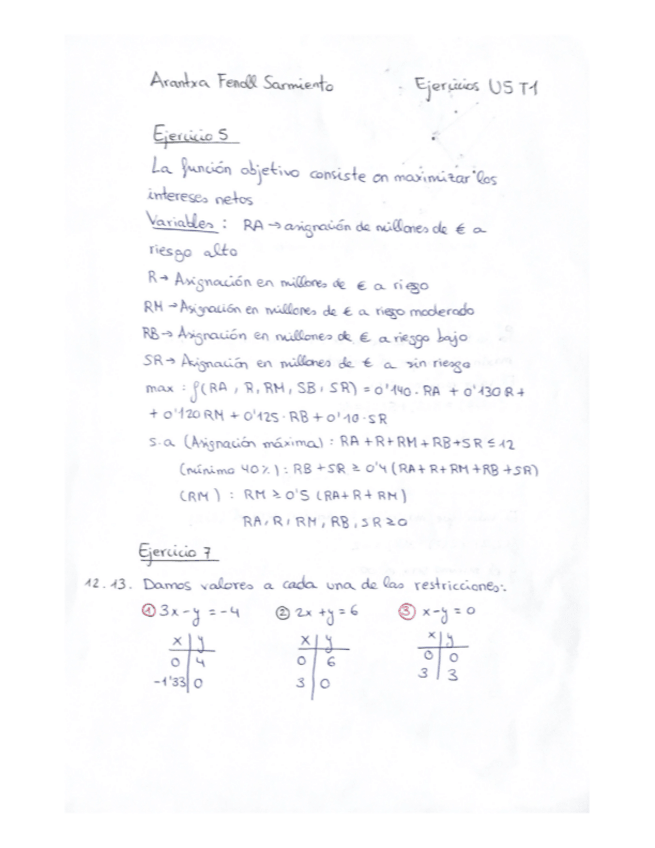 Arantxa Fenoll Sarmiento Ejercicios U5 T1
Ejercicio 5
La función objetivo consiste en maximizar los
intereses netos
Variables : RA → asignación de millones de € a
riesgo alto
R → Asignación en millones de € a riesgo
RM → Asignación en millones de € a riesgo moderado
RB → Asignación en millones de € a riesgo bajo
SR → Asignación en millones de € a sin riesgo
max : f(RA , R, RM, SB, SR) = 0'140 · RA + 0'130 R +
+ 0'120 RM + 0'125 · RB + 0'10 · SR
s.a (Asignación máxima) : RA + R + RM + RB + SR ≤ 12
(mínimo 40%) : RB + SR ≥ 0'4 (RA + R + RM + RB + SR)
(RM) : RM ≥ 0'5 (RA + R + RM)
RA, R, RM, RB, SR ≥ 0
Ejercicio 7
12.13. Damos valores a cada una de las restricciones:
① 3x - y = -4 ② 2x + y = 6 ③ x - y = 0
x | y x | y x | y
0 | 4 0 | 6 0 | 0
-1'33 | 0 3 | 0 3 | 3